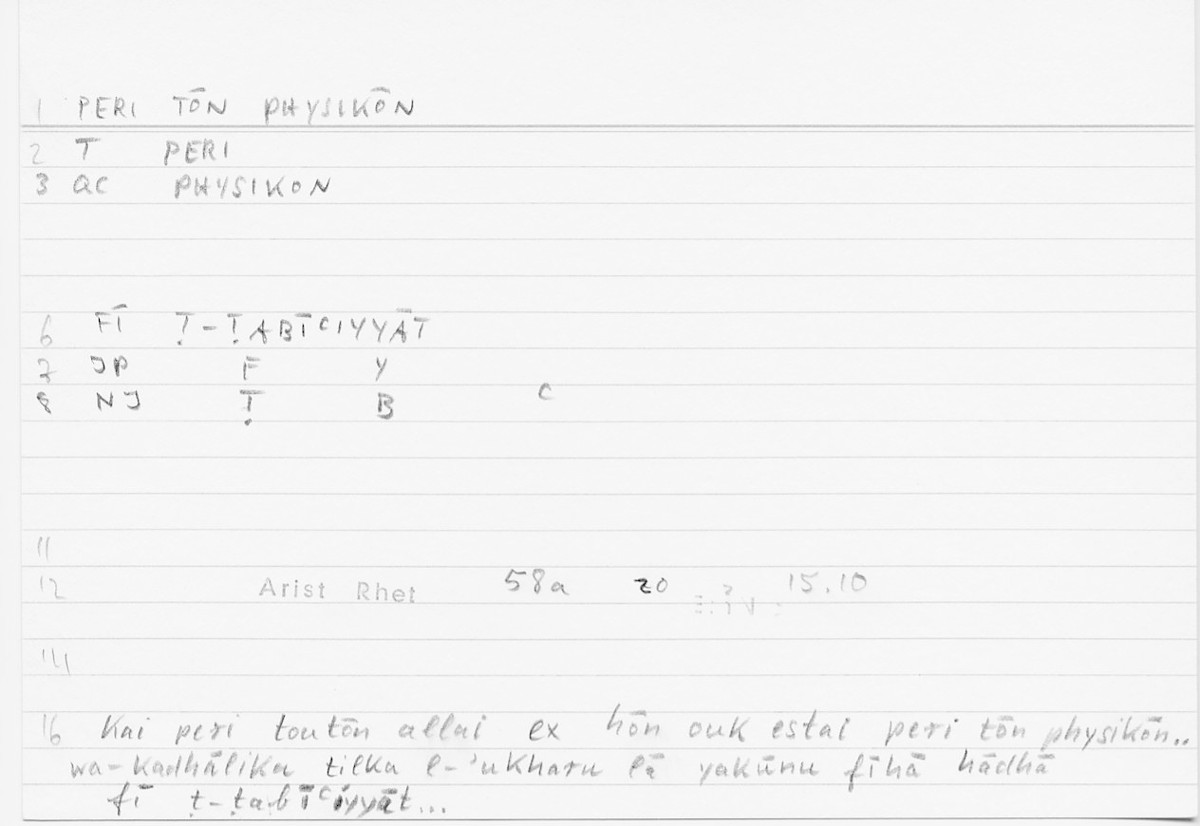 1 PERI TŌN PHYSIKŌN
2 T PERI
3 QC PHYSIKON
6 FĪ Ṭ-ṬABĪCIYYĀT
7 JP F Y
8 NJ Ṭ B C
11
12 Arist Rhet 58a 20 15.10
14
16 Kai peri toutōn allai ex hōn ouk estai peri tōn physikōn..
wa-kadhālika tilka l-'ukharu lā yakūnu fīhā hādhā
fī ṭ-ṭabīciyyāt...